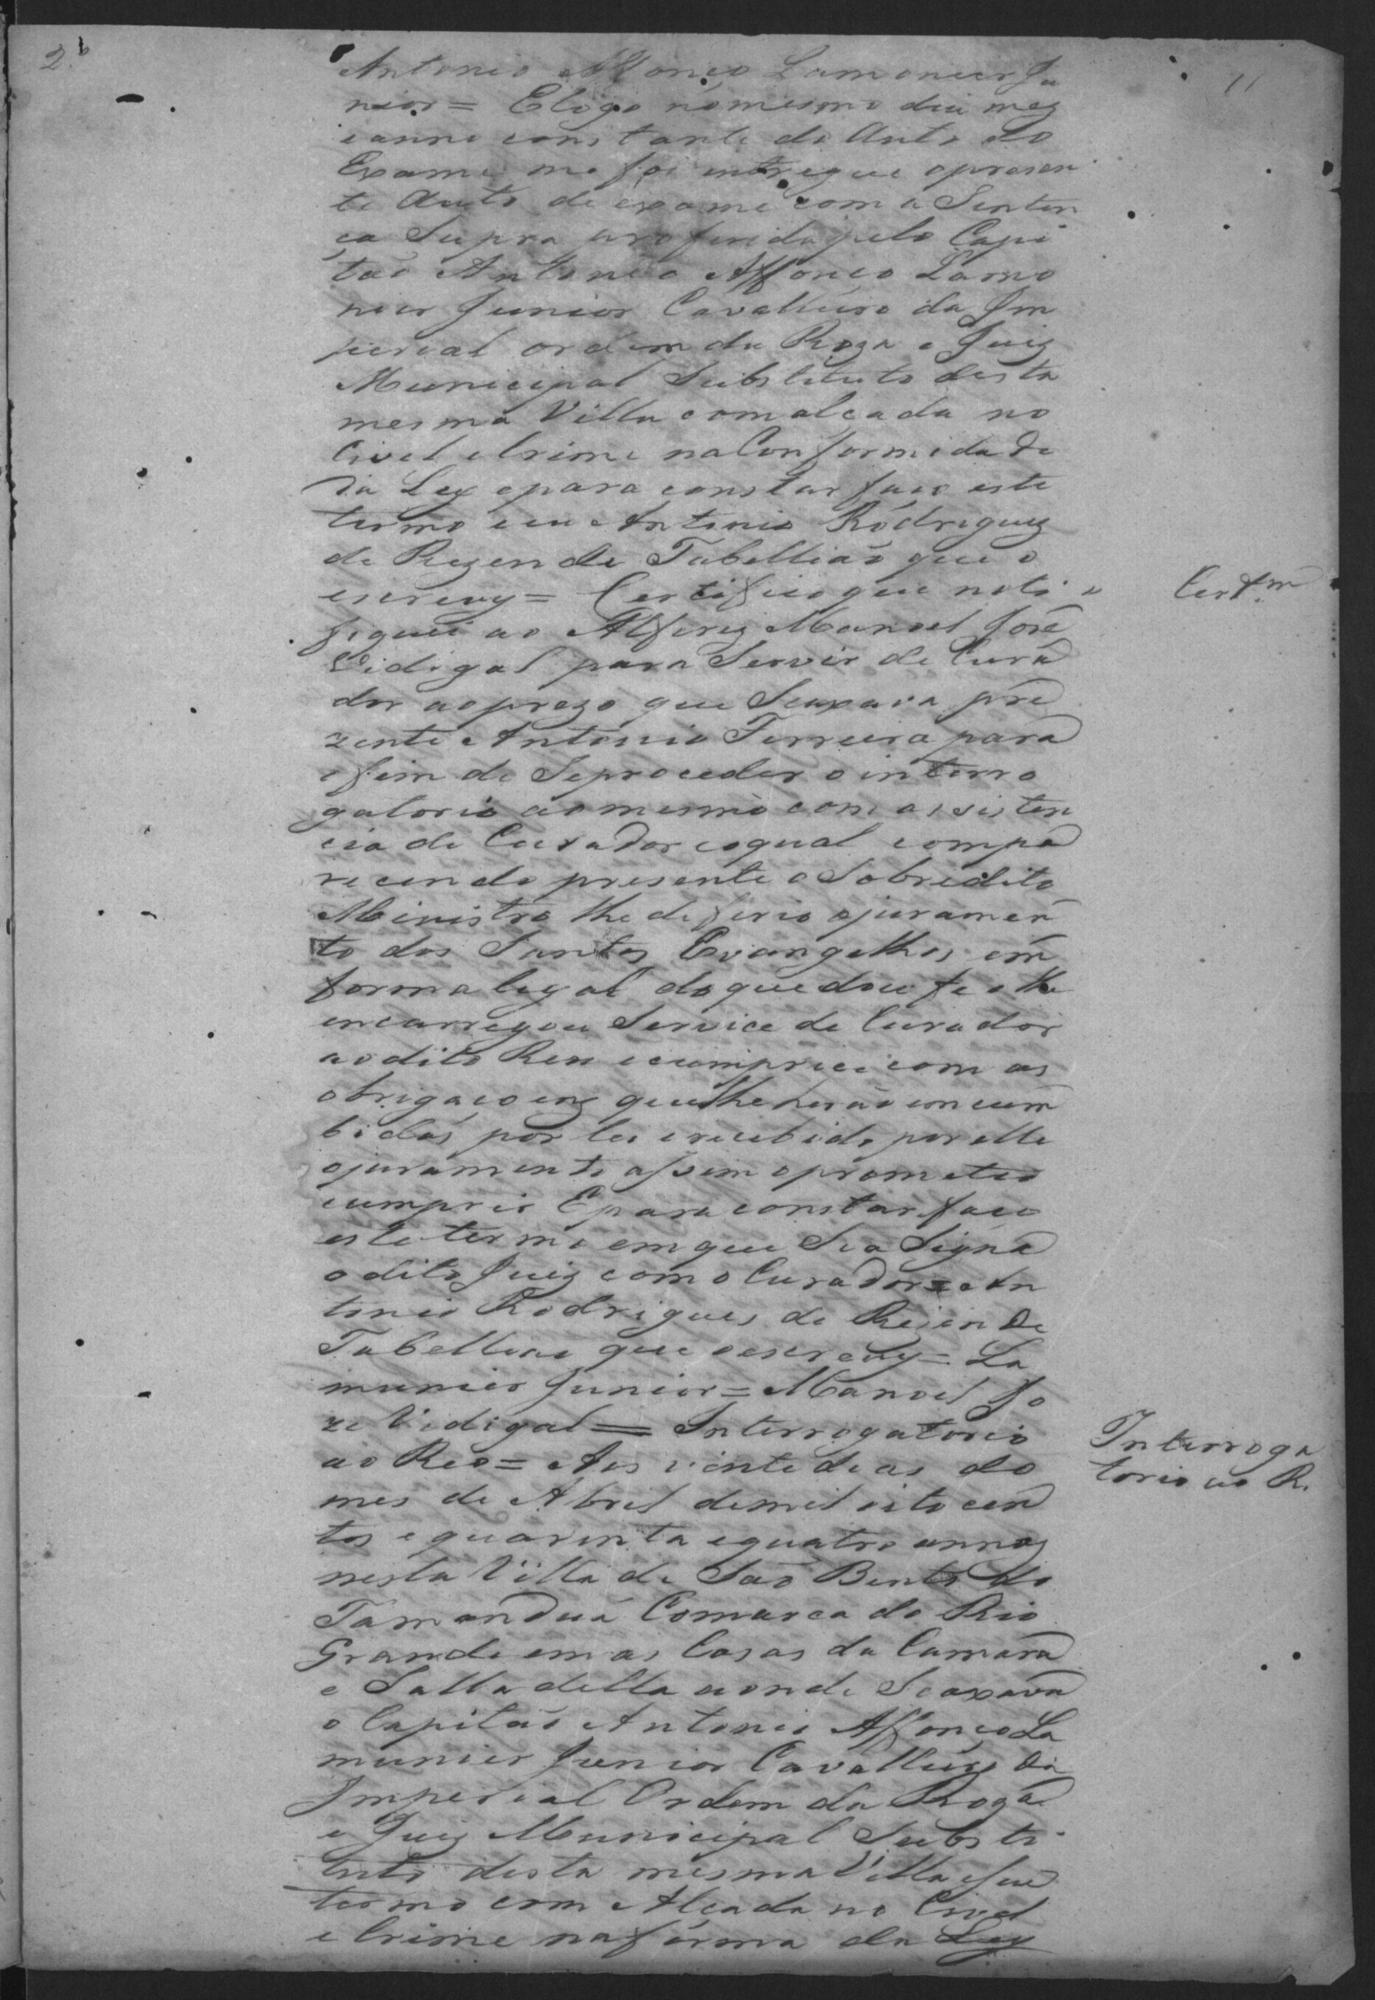 2.b
11
Antonio Affonço Lamonier Ju
nior = E logo no mesmo dia mez
e anno constante do Auto do
Exame me foi entregue o presen
te Auto de exame com a Senten
ça Supra proferida pelo Capi
tão Antonio Affonço Lamo
nier Junior Cavalleiro da Im
perial ordem da Roza e Juiz
Municipal Substituto desta
mesma Villa com alcada no
Civel e Crime na Conformidade
da Ley e para constar faço este
termo e eu Antonio Rodriguez
de Rezende Tabellião que o
escrevy = Certifico que noti
fiquei ao Alferez Manoel José
Vidigal para Servir de Cura
dor ao prezo que Seaxava pre
zente Antonio Ferreira para
o fim de Seproceder o interro
gatorio ao mesmo com assisten
cia de Curador e o qual compa
recendo presente o Sobredito
Ministro lhe deferio o juramen
to dos Santos Evangelhos em
forma legal do que dou fe e lhe
encarregou Service de Curador
ao dito Reu e comprice com as
obrigacoenz que lhe herão encum
bidas por lei e recebido por elle
o juramento assim o prometeo
cumprir E para constar faço
este termo em que Se a Signa
o dito Juiz com o Curador = An
tonio Rodrigues de Resende
Tabellião que o escrevy = La
munier Junior = Manoel Jo
ze Vidigal = Interrogatorio
ao Reo = Aos vinte dias do
mes de Abril de mil oito cen
tos e quarenta e quatro annos
nesta Villa de São Bento do
Tamanduá Comarca do Rio
Grande em as Casas da Camara
e Salla della aonde Seaxava
o Capitão Antonio Affonço La
munier Junior Cavalleiro da
Imperial Ordem da Roza
e Juiz Municipal Substi
tuto desta mesma Villa e Seu
termo com Alcada no Civel
e Crime na forma da Ley
Cert.m
Interroga
torio ao R.